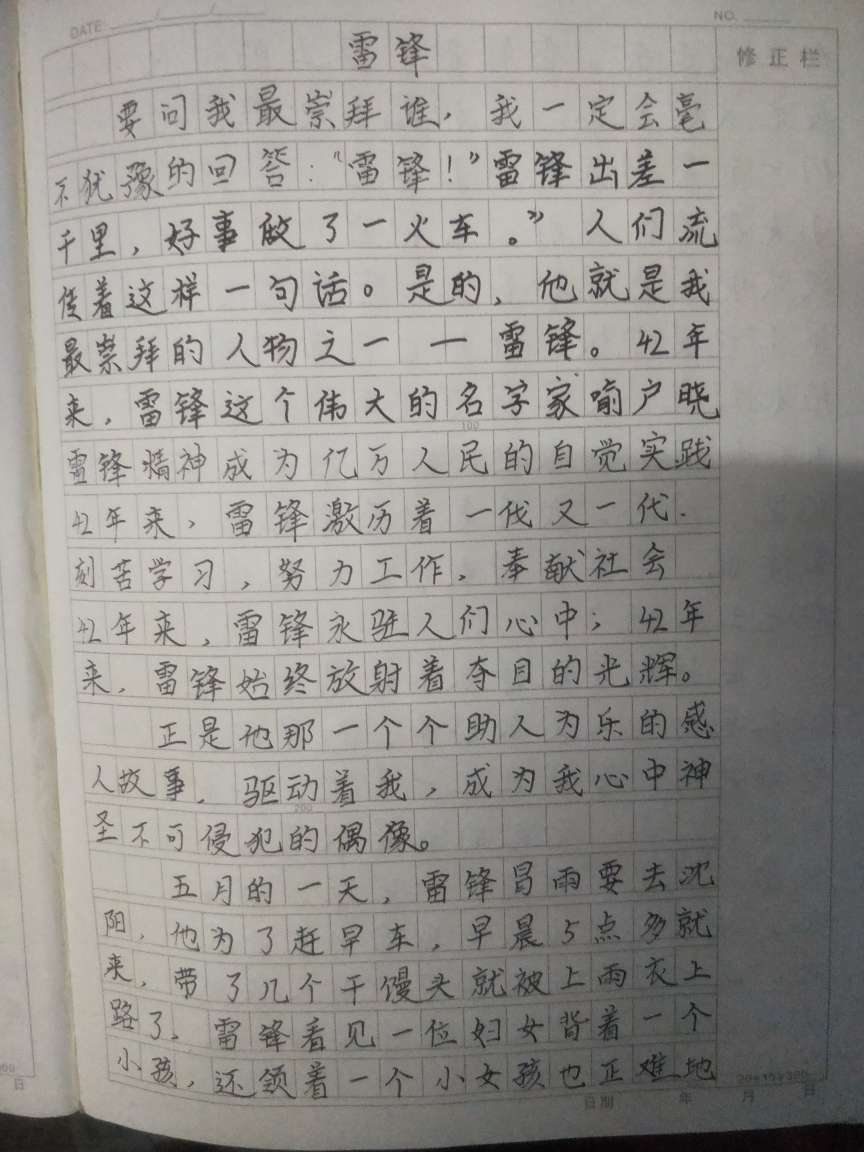 DATE
NO.
修正栏
雷锋
要问我最崇拜谁，我一定会毫
不犹豫的回答：“雷锋！”雷锋出差一
千里，好事做了一火车。” 人们流
传着这样一句话。是的，他就是我
最崇拜的人物之一 — 雷锋。42年
来，雷锋这个伟大的名字家喻户晓
100
雷锋精神成为亿万人民的自觉实践
42年来，雷锋激历着一代又一代.
刻苦学习，努力工作，奉献社会
42年来，雷锋永驻人们心中；42年
来，雷锋始终放射着夺目的光辉。
正是他那一个个助人为乐的感
人故事，驱动着我，成为我心中神
200
圣不可侵犯的偶像。
五月的一天，雷锋冒雨要去沈
阳，他为了赶早车，早晨5点多就
来，带了几个干馒头就被上雨衣上
路了，雷锋看见一位妇女背着一个
小孩，还领着一个小女孩也正难地
20×15=300
日期 年 月 日